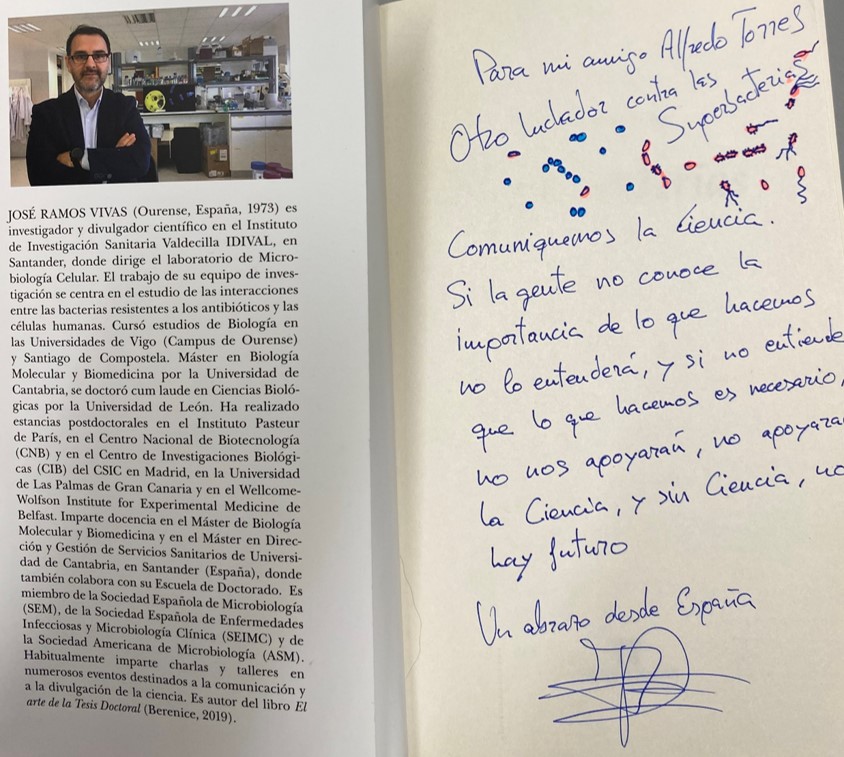 JOSÉ RAMOS VIVAS (Ourense, España, 1973) es
investigador y divulgador científico en el Instituto
de Investigación Sanitaria Valdecilla IDIVAL, en
Santander, donde dirige el laboratorio de Micro-
biología Celular. El trabajo de su equipo de inves-
tigación se centra en el estudio de las interacciones
entre las bacterias resistentes a los antibióticos y las
células humanas. Cursó estudios de Biología en
las Universidades de Vigo (Campus de Ourense)
y Santiago de Compostela. Máster en Biología
Molecular y Biomedicina por la Universidad de
Cantabria, se doctoró cum laude en Ciencias Bioló-
gicas por la Universidad de León. Ha realizado
estancias postdoctorales en el Instituto Pasteur
de París, en el Centro Nacional de Biotecnología
(CNB) y en el Centro de Investigaciones Biológi-
cas (CIB) del CSIC en Madrid, en la Universidad
de Las Palmas de Gran Canaria y en el Wellcome-
Wolfson Institute for Experimental Medicine de
Belfast. Imparte docencia en el Máster de Biología
Molecular y Biomedicina y en el Máster en Direc-
ción y Gestión de Servicios Sanitarios de Universi-
dad de Cantabria, en Santander (España), donde
también colabora con su Escuela de Doctorado. Es
miembro de la Sociedad Española de Microbiología
(SEM), de la Sociedad Española de Enfermedades
Infecciosas y Microbiología Clínica (SEIMC) y de
la Sociedad Americana de Microbiología (ASM).
Habitualmente imparte charlas y talleres en
numerosos eventos destinados a la comunicación y
a la divulgación de la ciencia. Es autor del libro El
arte de la Tesis Doctoral (Berenice, 2019).
Para mi amigo Alfredo Torres
Otro luchador contra las
Superbacterias
Comuniquemos la Ciencia.
Si la gente no conoce la
importancia de lo que hacemos
no lo entenderá, y si no entiende
que lo que hacemos es necesario,
no nos apoyarán, no apoyara
la Ciencia, y sin Ciencia, no
hay futuro
Un abrazo desde España